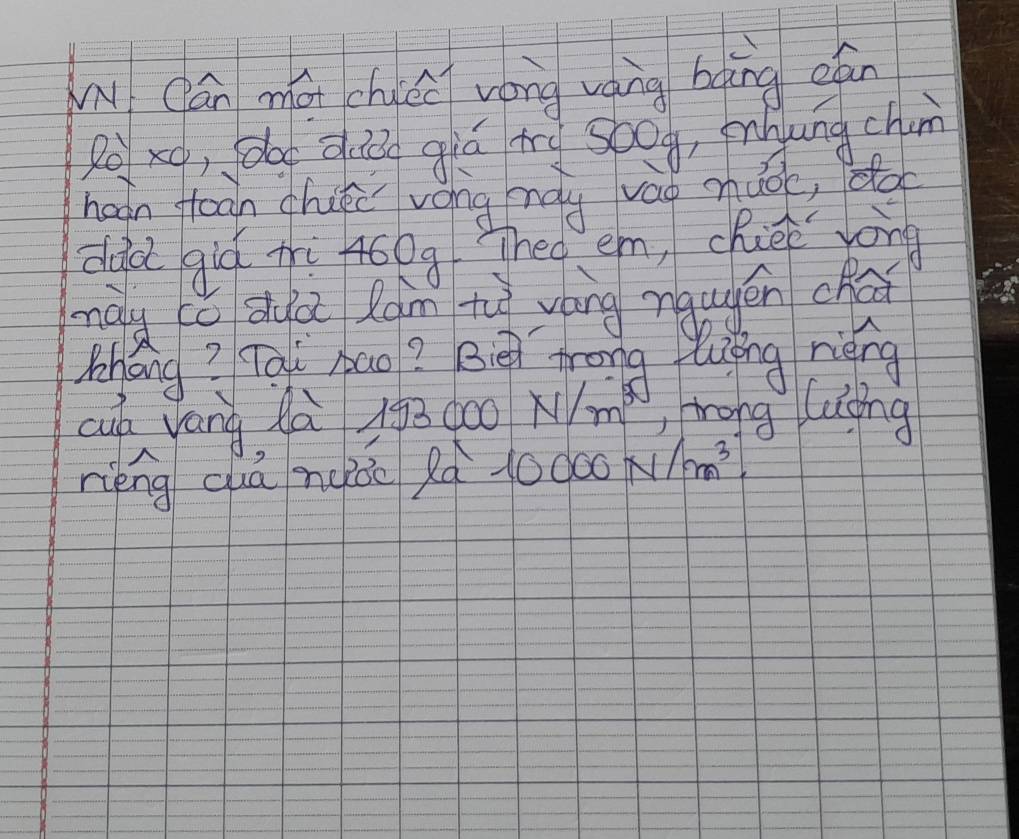 VN. Cân một chiếc vòng vàng bằng cân
lò xo, đọc được giá trị 500g, nhúng chìm
hoàn toàn chiếc vòng này vào nước, đọc
được giá trị 460g. Theo em, chiếc vòng
này có được làm từ vàng nguyên chất
không? Tại sao? Biết trọng lượng riêng
của vàng là 193 000 N/m³, trọng lượng
riêng của nước là 10 000 N/m³.